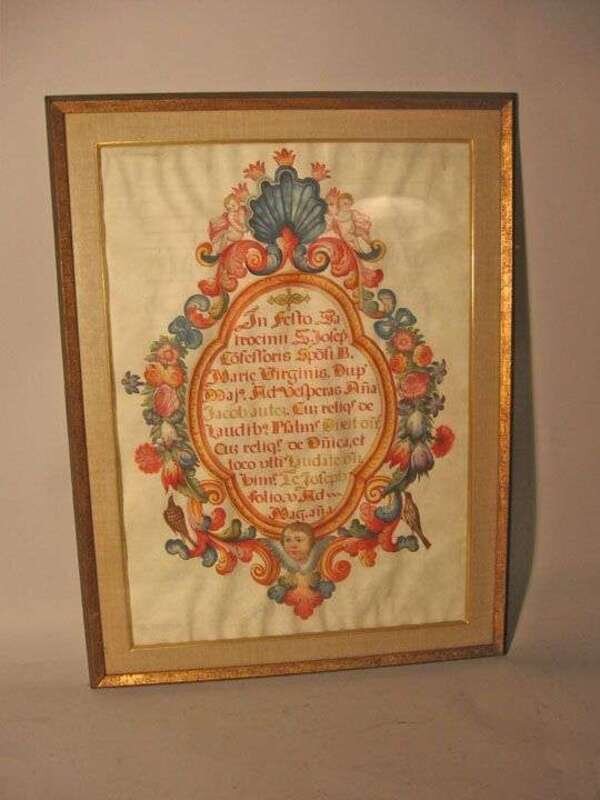 In Festo Pa
trocinii S. Josep
Cõfessoris Spõsi B.
Marie Virginis. Dup.
Maj. Ad Vesperas Aña
Jacob autez. Cuz reliqs de
Laudibs. Psalms Dixit
Cuz reliqs. de Dñica, et
loco ulti Laudate
Himns Te Joseph
folio, v. Ad
Mag. aña